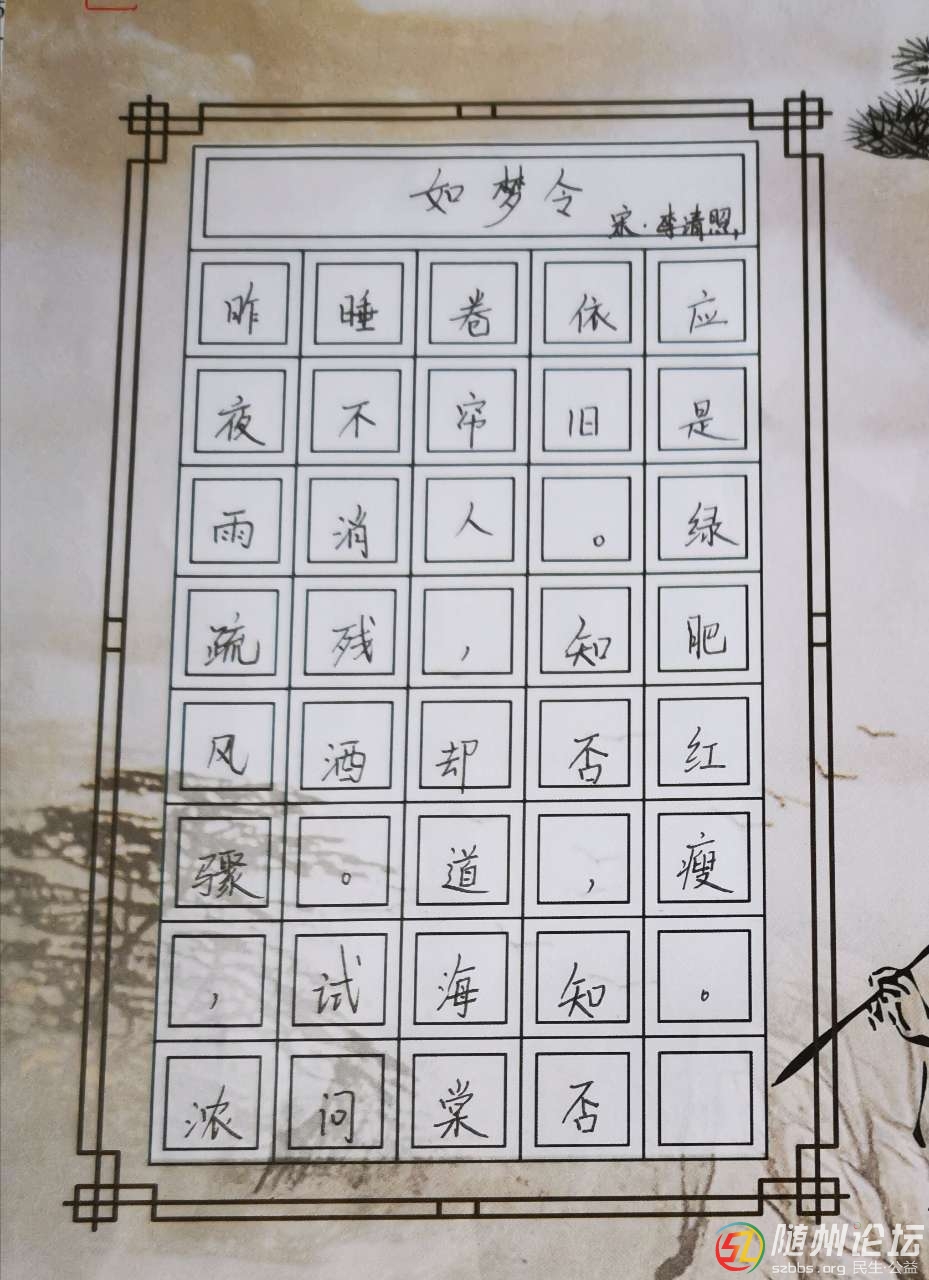 如梦令
宋·李清照
昨夜雨疏风骤，浓
睡不消残酒。试问
卷帘人，却道海棠
依旧。知否，知否
应是绿肥红瘦。
随州论坛
szbbs.org 民生·公益